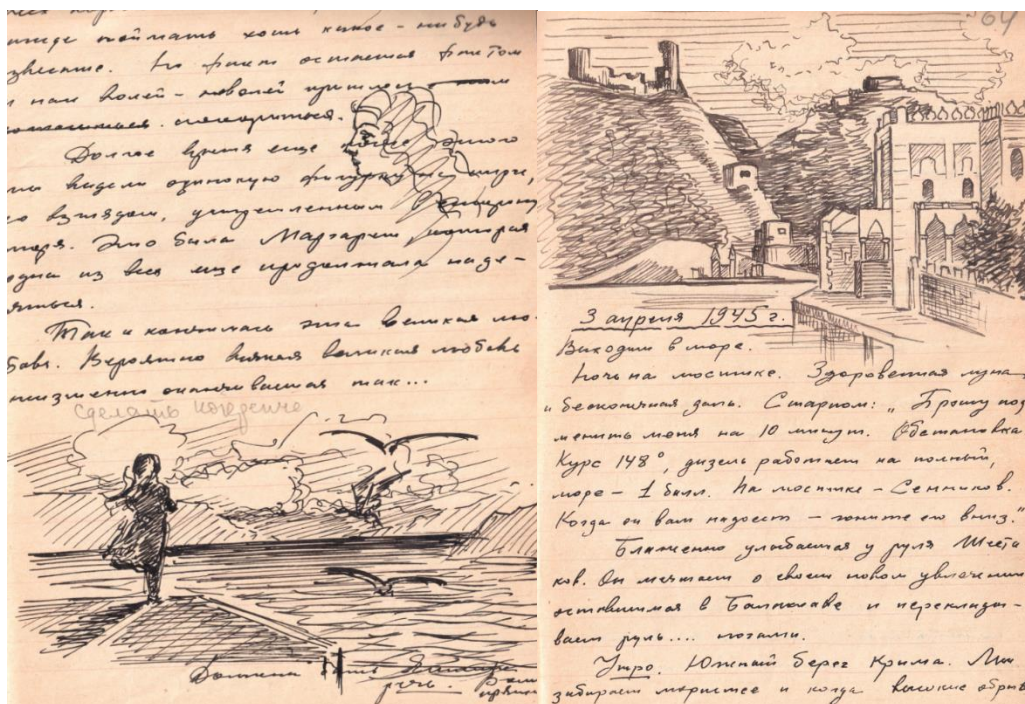 надежде поймать хоть какое-нибудь
известие. Но факт остается фактом
и нам волей-неволей пришлось с ним
согласиться. смириться.
Долгое время еще после этого
мы видели одинокую фигурку на пирсе,
со взглядом, устремленным в сторону
моря. Это была Маргарет, которая
одна из всех еще продолжала наде-
яться.
Так и кончилась эта великая лю-
бовь. Вероятно всякая великая любовь
неизменно оканчивается так...
сделать
64
3 апреля 1945 г.
Выходим в море.
Ночь на мостике. Здоровенная луна
и бесконечная даль. Старпом: „Прошу под
менить меня на 10 минут. Обстановка
Курс 148°, дизель работает на полный,
море – 1 балл. На мостике – Сенников.
Когда он вам надоест – гоните его вниз."
Блаженно улыбается у руля Шеста
ков. Он мечтает о своем новом увлечении
оставшимся в Балаклаве и перекладыва-
вает руль.... ногами.
Утро. Южный берег Крыма. Мы
забираем мористее и когда высокие обрывы